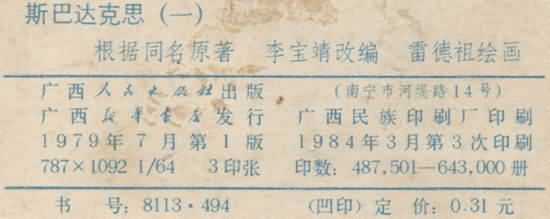 斯巴达克思（一）
根据同名原著 李宝靖改编 雷德祖绘画
广西人民出版社出版 （南宁市河堤路14号）
广西新华书店发行 广西民族印刷厂印刷
1979年7月第1版 1984年3月第3次印刷
787×1092 1/64 3印张 印数：487,501—643,000册
书 号：8113·494 （凹印）定 价：0.31元